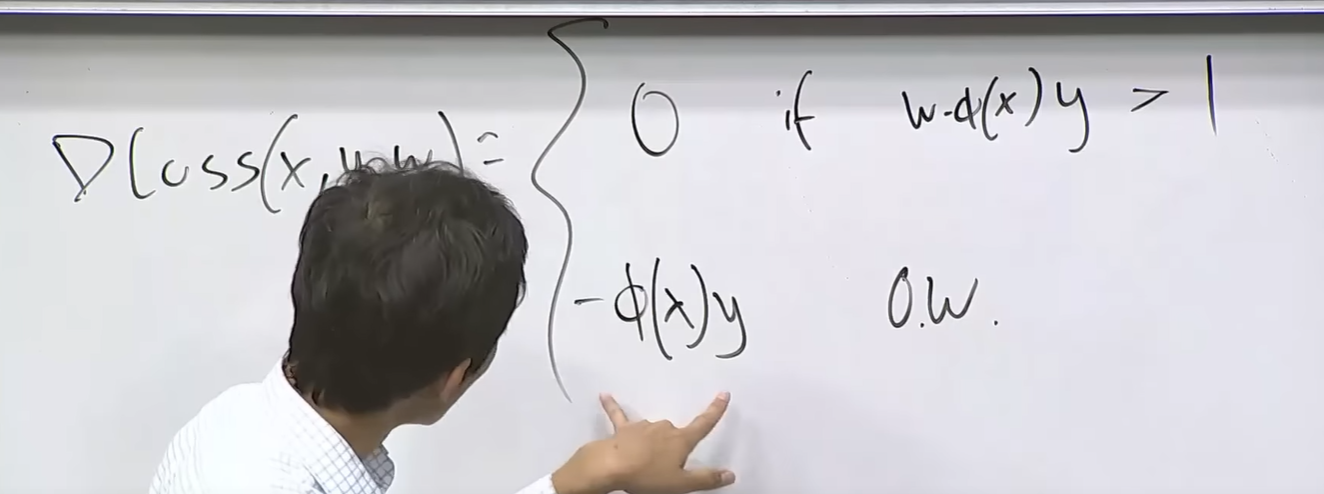 DLoss(x, y, w) = { 0 if w·ϕ(x)y > 1
-ϕ(x)y O.W.